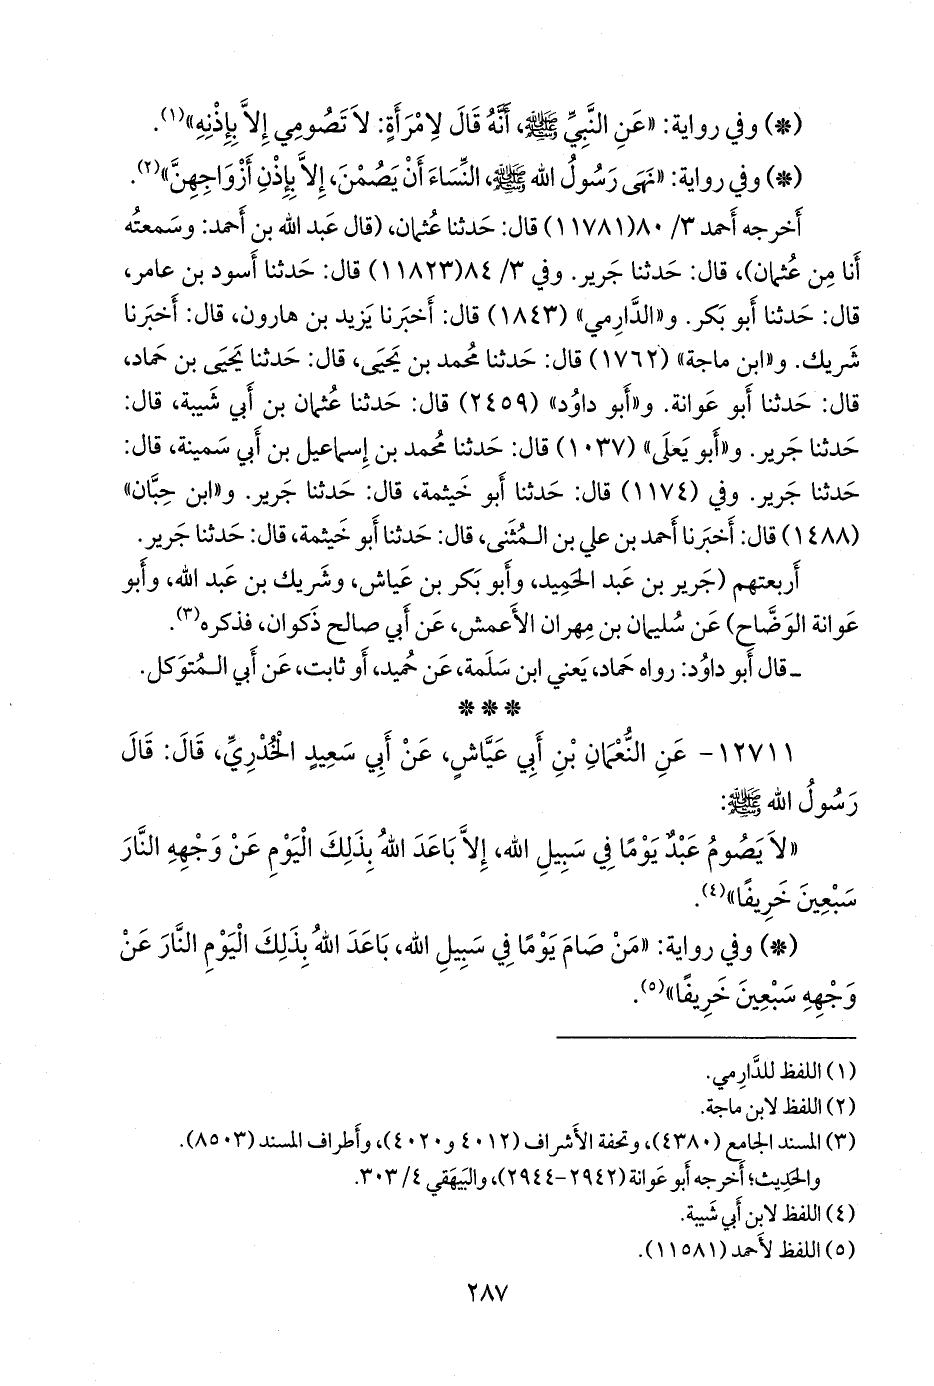 (*) وفي رواية: «عَنِ النَّبِيِّ ﷺ، أَنَّهُ قَالَ لاِمْرَأَةٍ: لاَ تَصُومِي إِلاَّ بِإِذْنِهِ»(١).
(*) وفي رواية: «نَهَى رَسُولُ الله ﷺ، النِّسَاءَ أَنْ يَصُمْنَ، إِلاَّ بِإِذْنِ أَزْوَاجِهِنَّ»(٢).
أَخرجه أَحمد ٣/ ٨٠(١١٧٨١) قال: حَدثنا عُثمان، (قال عَبد الله بن أَحمد: وسَمعتُه
أَنا مِن عُثمان)، قال: حَدثنا جَرير. وفي ٣/ ٨٤(١١٨٢٣) قال: حَدثنا أَسود بن عامر،
قال: حَدثنا أَبو بَكر. و«الدَّارِمي» (١٨٤٣) قال: أَخبَرنا يَزيد بن هارون، قال: أَخبَرنا
شَريك. و«ابن ماجة» (١٧٦٢) قال: حَدثنا مُحمد بن يَحيَى، قال: حَدثنا يَحيَى بن حَماد،
قال: حَدثنا أَبو عَوانة. و«أَبو داوُد» (٢٤٥٩) قال: حَدثنا عُثمان بن أَبي شَيبة، قال:
حَدثنا جَرير. و«أَبو يَعلَى» (١٠٣٧) قال: حَدثنا مُحمد بن إِسماعيل بن أَبي سَمينة، قال:
حَدثنا جَرير. وفي (١١٧٤) قال: حَدثنا أَبو خَيثمة، قال: حَدثنا جَرير. و«ابن حِبَّان»
(١٤٨٨) قال: أَخبَرنا أَحمد بن علي بن الـمُثَنى، قال: حَدثنا أَبو خَيثمة، قال: حَدثنا جَرير.
أَربعتهم (جَرير بن عَبد الحَمِيد، وأَبو بَكر بن عَياش، وشَريك بن عَبد الله، وأَبو
عَوانة الوَضَّاح) عَن سُليمان بن مِهران الأَعمش، عَن أَبي صالح ذَكوان، فذكره(٣).
ـ قال أَبو داوُد: رواه حَماد، يَعني ابن سَلَمة، عَن حُميد، أَو ثابت، عَن أَبي الـمُتوَكل.
* * *
١٢٧١١- عَنِ النُّعْمَانِ بْنِ أَبِي عَيَّاشٍ، عَنْ أَبِي سَعِيدٍ الْخُدْرِيِّ، قَالَ: قَالَ
رَسُولُ الله ﷺ:
«لاَ يَصُومُ عَبْدٌ يَوْمًا فِي سَبِيلِ الله، إِلاَّ بَاعَدَ اللهُ بِذَلِكَ الْيَوْمِ عَنْ وَجْهِهِ النَّارَ
سَبْعِينَ خَرِيفًا»(٤).
(*) وفي رواية: «مَنْ صَامَ يَوْمًا فِي سَبِيلِ الله، بَاعَدَ اللهُ بِذَلِكَ الْيَوْمِ النَّارَ عَنْ
وَجْهِهِ سَبْعِينَ خَرِيفًا»(٥).
(١) اللفظ للدَّارِمي.
(٢) اللفظ لابن ماجة.
(٣) المسند الجامع (٤٣٨٠)، وتحفة الأَشراف (٤٠١٢ و٤٠٢٠)، وأَطراف المسند (٨٥٠٣).
والحَدِيث؛ أَخرجه أَبو عَوانة (٢٩٤٢-٢٩٤٤)، والبَيهَقي ٤/ ٣٠٣.
(٤) اللفظ لابن أَبي شَيبة.
(٥) اللفظ لأَحمد (١١٥٨١).
٢٨٧